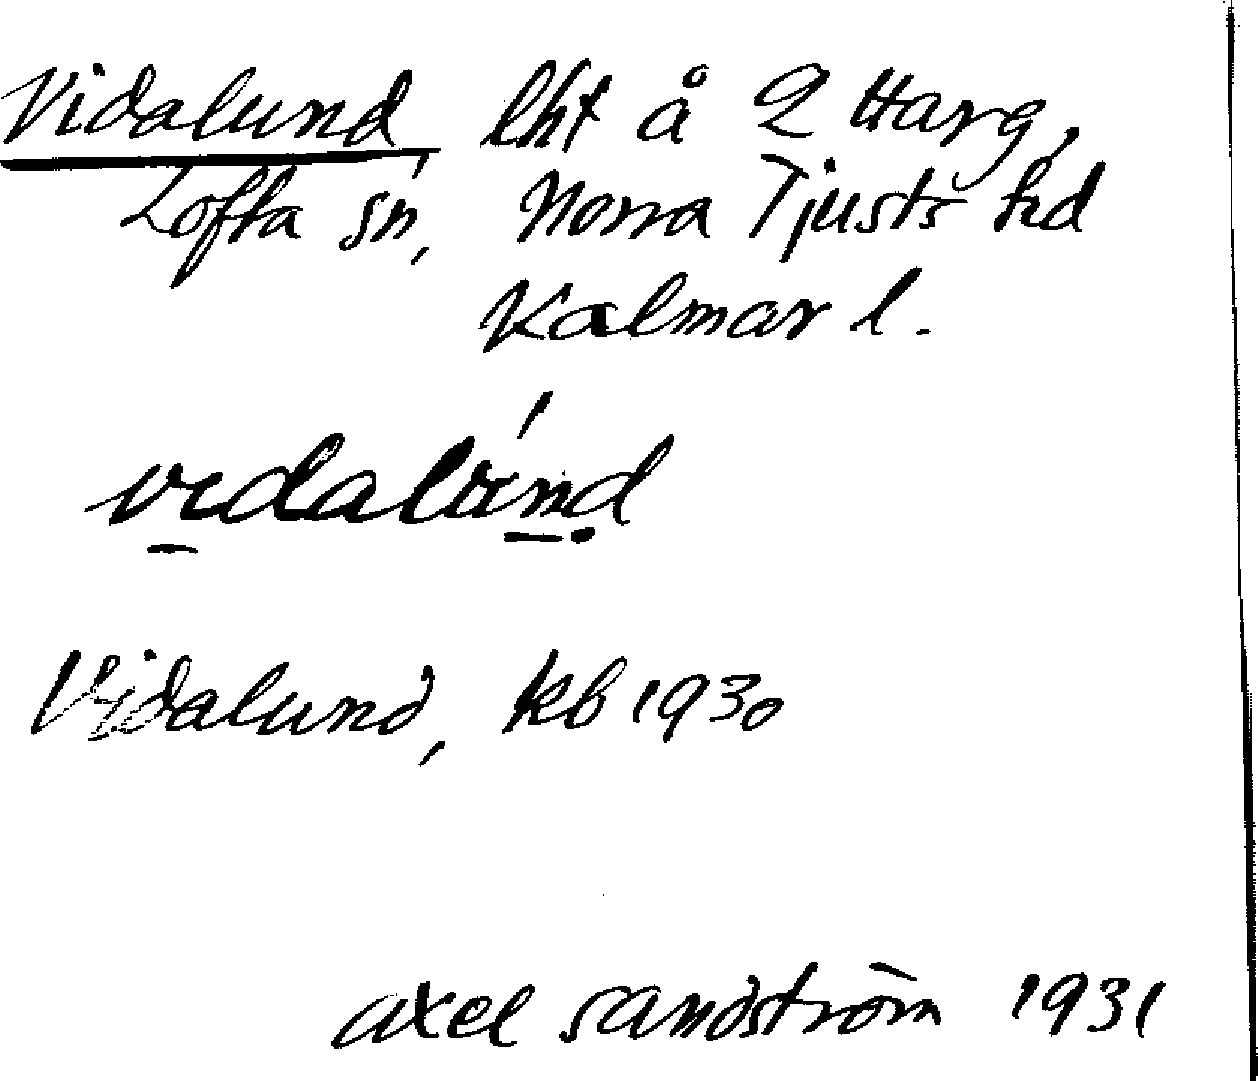 Vidalund lht å 2 Harg,
Lofta sn, Norra Tjusts hd
Kalmar l.
vidalund
Vidalund, kb 1930
axel sandström 1931